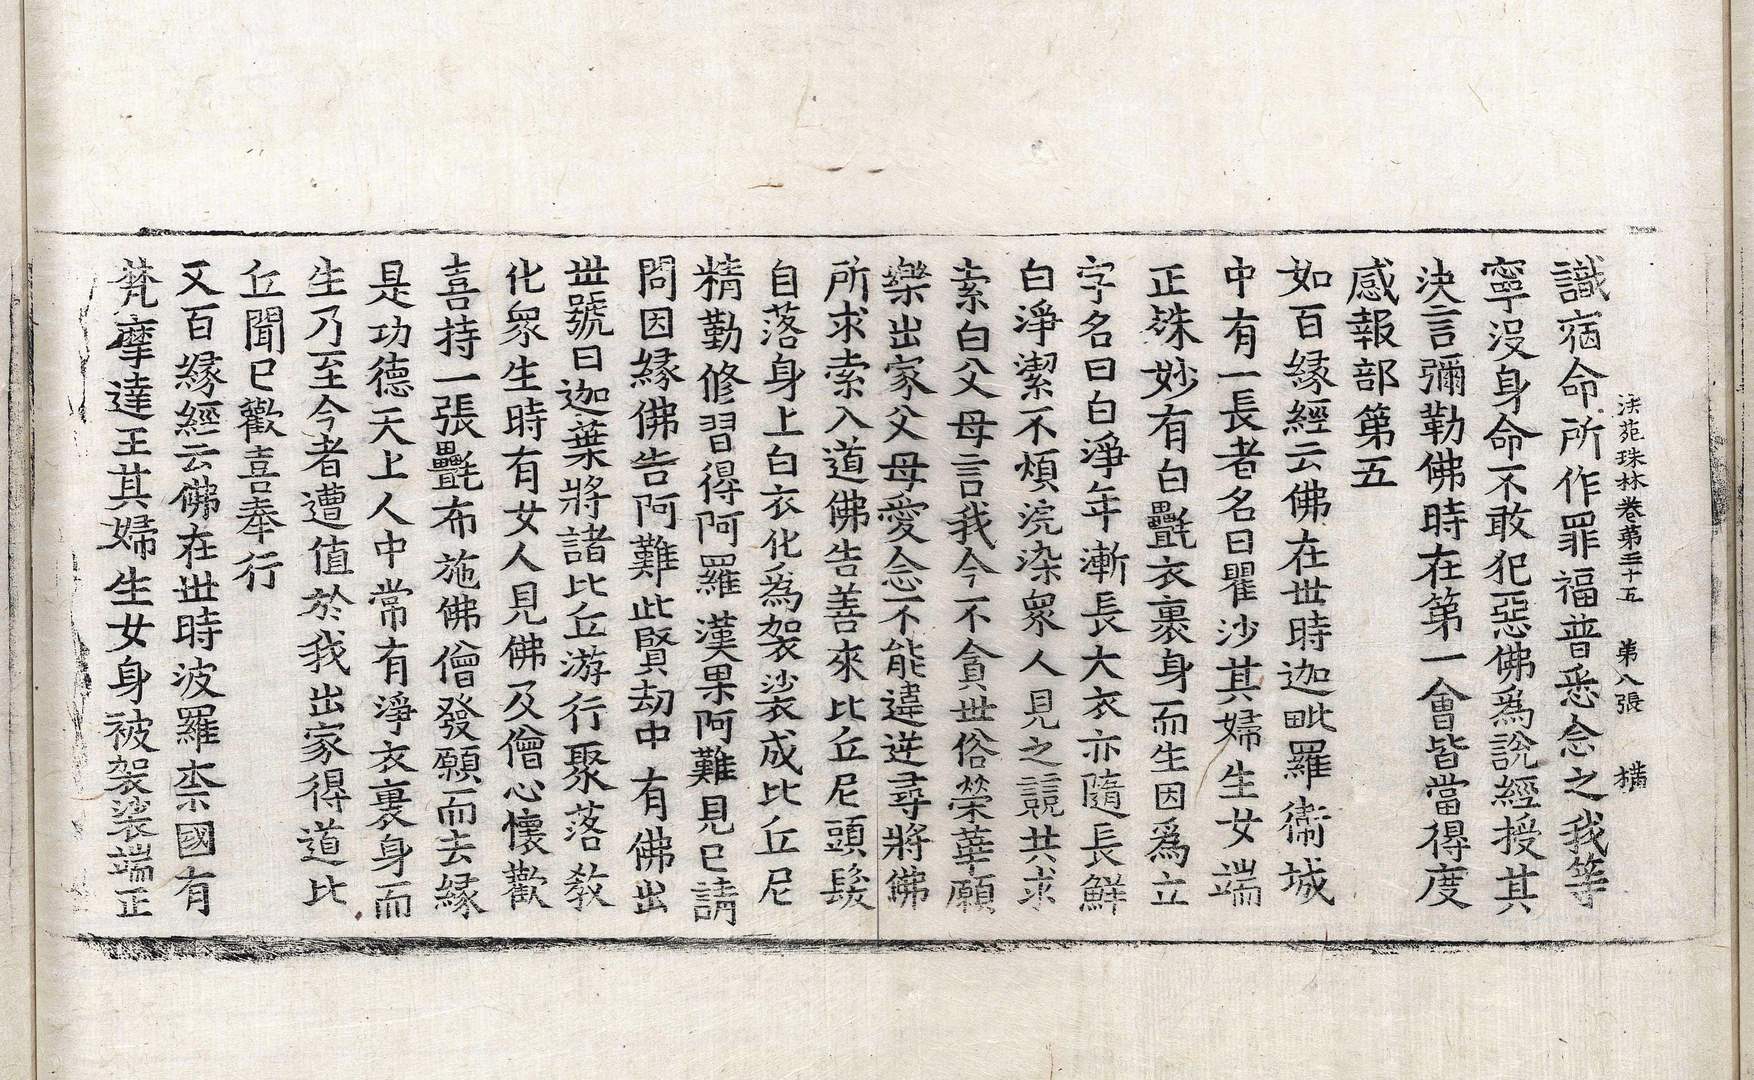 法苑珠林卷第三十五 第八張 橫
識宿命所作罪福普悉念之我等
寧沒身命不敢犯惡佛為說經授其
決言彌勒佛時在第一會皆當得度
感報部第五
如百緣經云佛在世時迦毗羅衛城
中有一長者名曰瞿沙其婦生女端
正姝妙有白㲲衣裹身而生因為立
字名曰白淨年漸長大衣亦隨長鮮
白淨潔不煩浣染眾人見之競共求
索白父母言我今不貪世俗榮華願
樂出家父母愛念不能違逆尋將佛
所求索入道佛告善來比丘尼頭髮
自落身上白衣化為袈裟成比丘尼
精勤修習得阿羅漢果阿難見已請
問因緣佛告阿難此賢劫中有佛出
世號曰迦葉將諸比丘游行聚落教
化眾生時有女人見佛及僧心懷歡
喜持一張㲲布施佛僧發願而去緣
是功德天上人中常有淨衣裹身而
生乃至今者遭值於我出家得道比
丘聞已歡喜奉行
又百緣經云佛在世時波羅柰國有
梵摩達王其婦生女身被袈裟端正